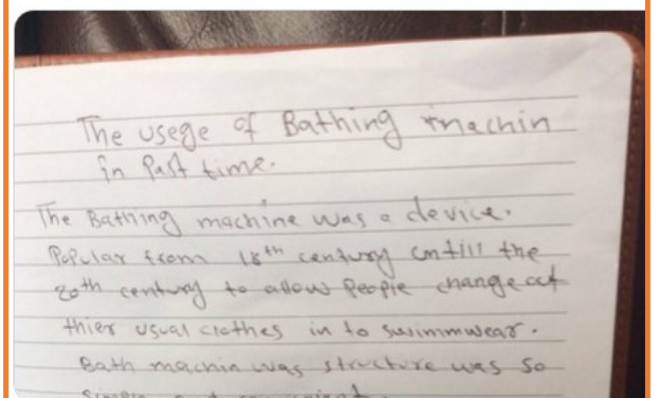 The usege of Bathing machin
in Past time.
The Bathing machine was a device.
Popular from 18th century untill the
20th century to allow people change out
thier usual clothes in to swimmwear.
Bath machin was structure was so
simple and convenient.